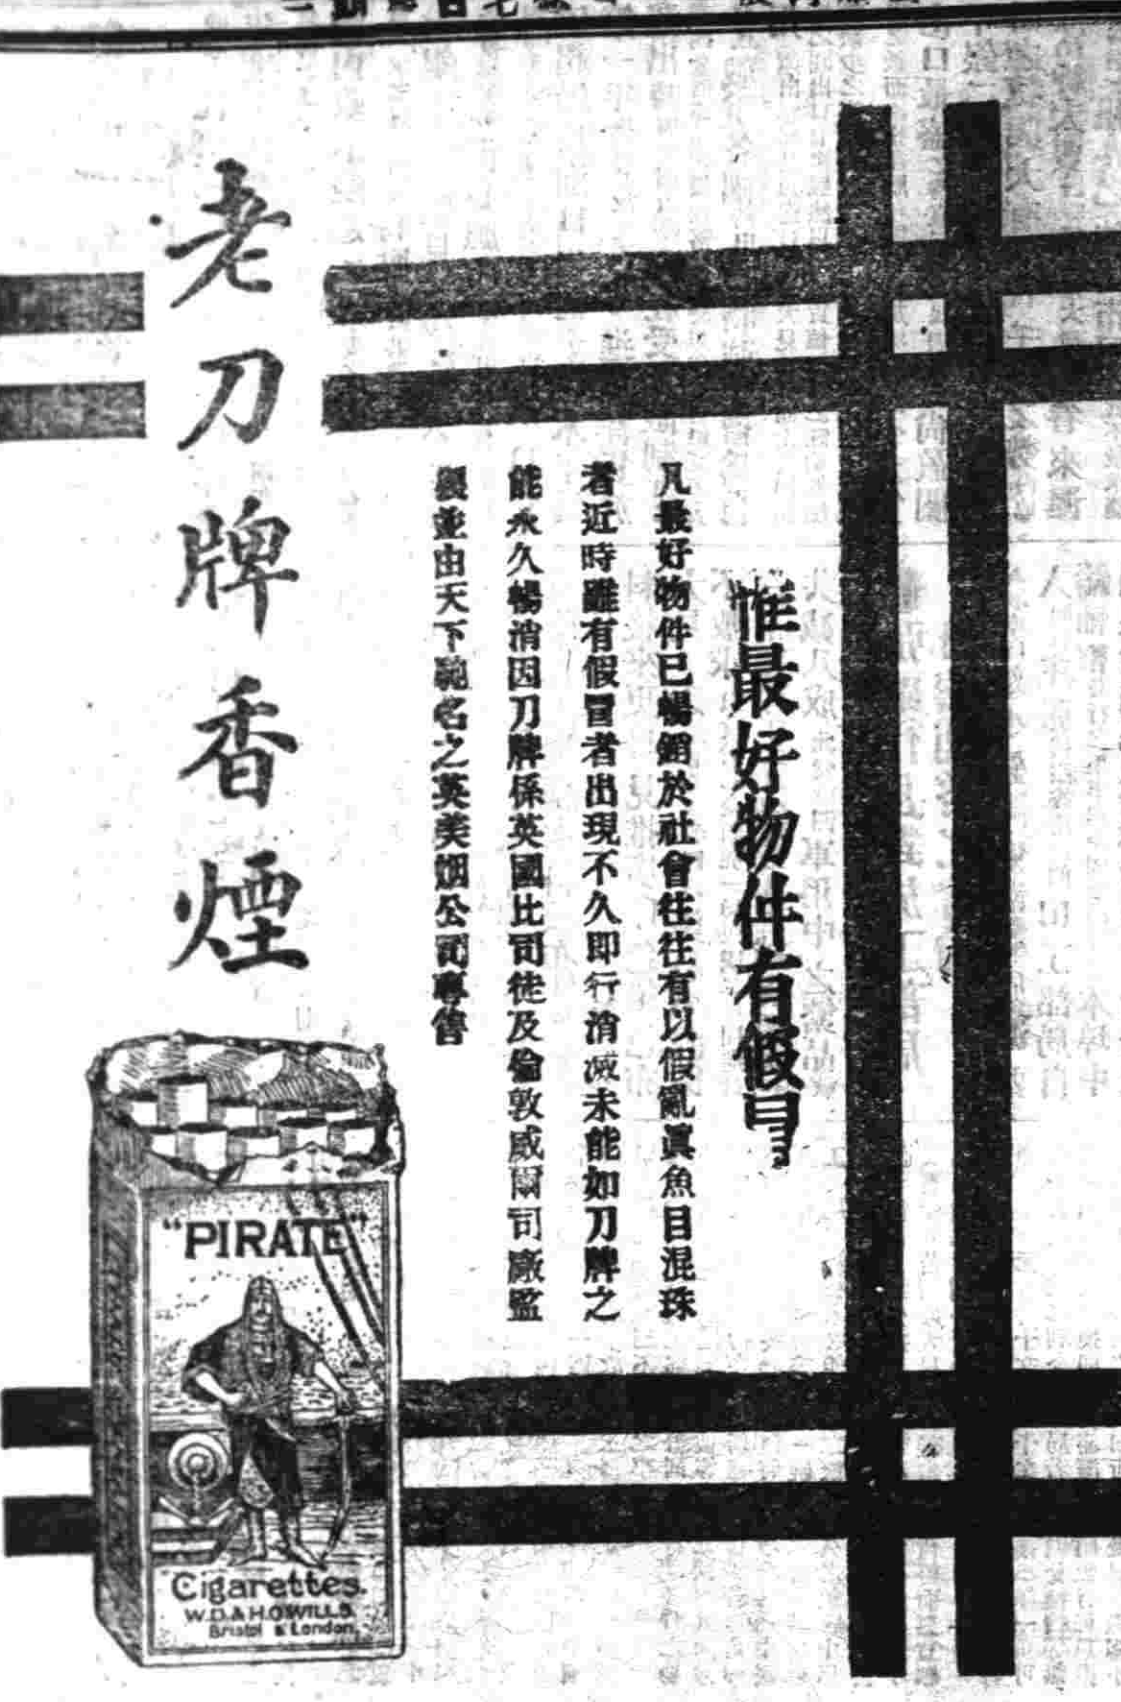 惟最好物件有假冒
凡最好物件已暢銷於社會往往有以假亂眞魚目混珠
者近時雖有假冒者出現不久即行消滅未能如刀牌之
能永久暢消因刀牌係英國比司徒及倫敦威爾司廠監
製並由天下馳名之英美烟公司專售
老刀牌香煙
"PIRATE"
Cigarettes.
W.D. & H.O. WILLS.
Bristol & London.